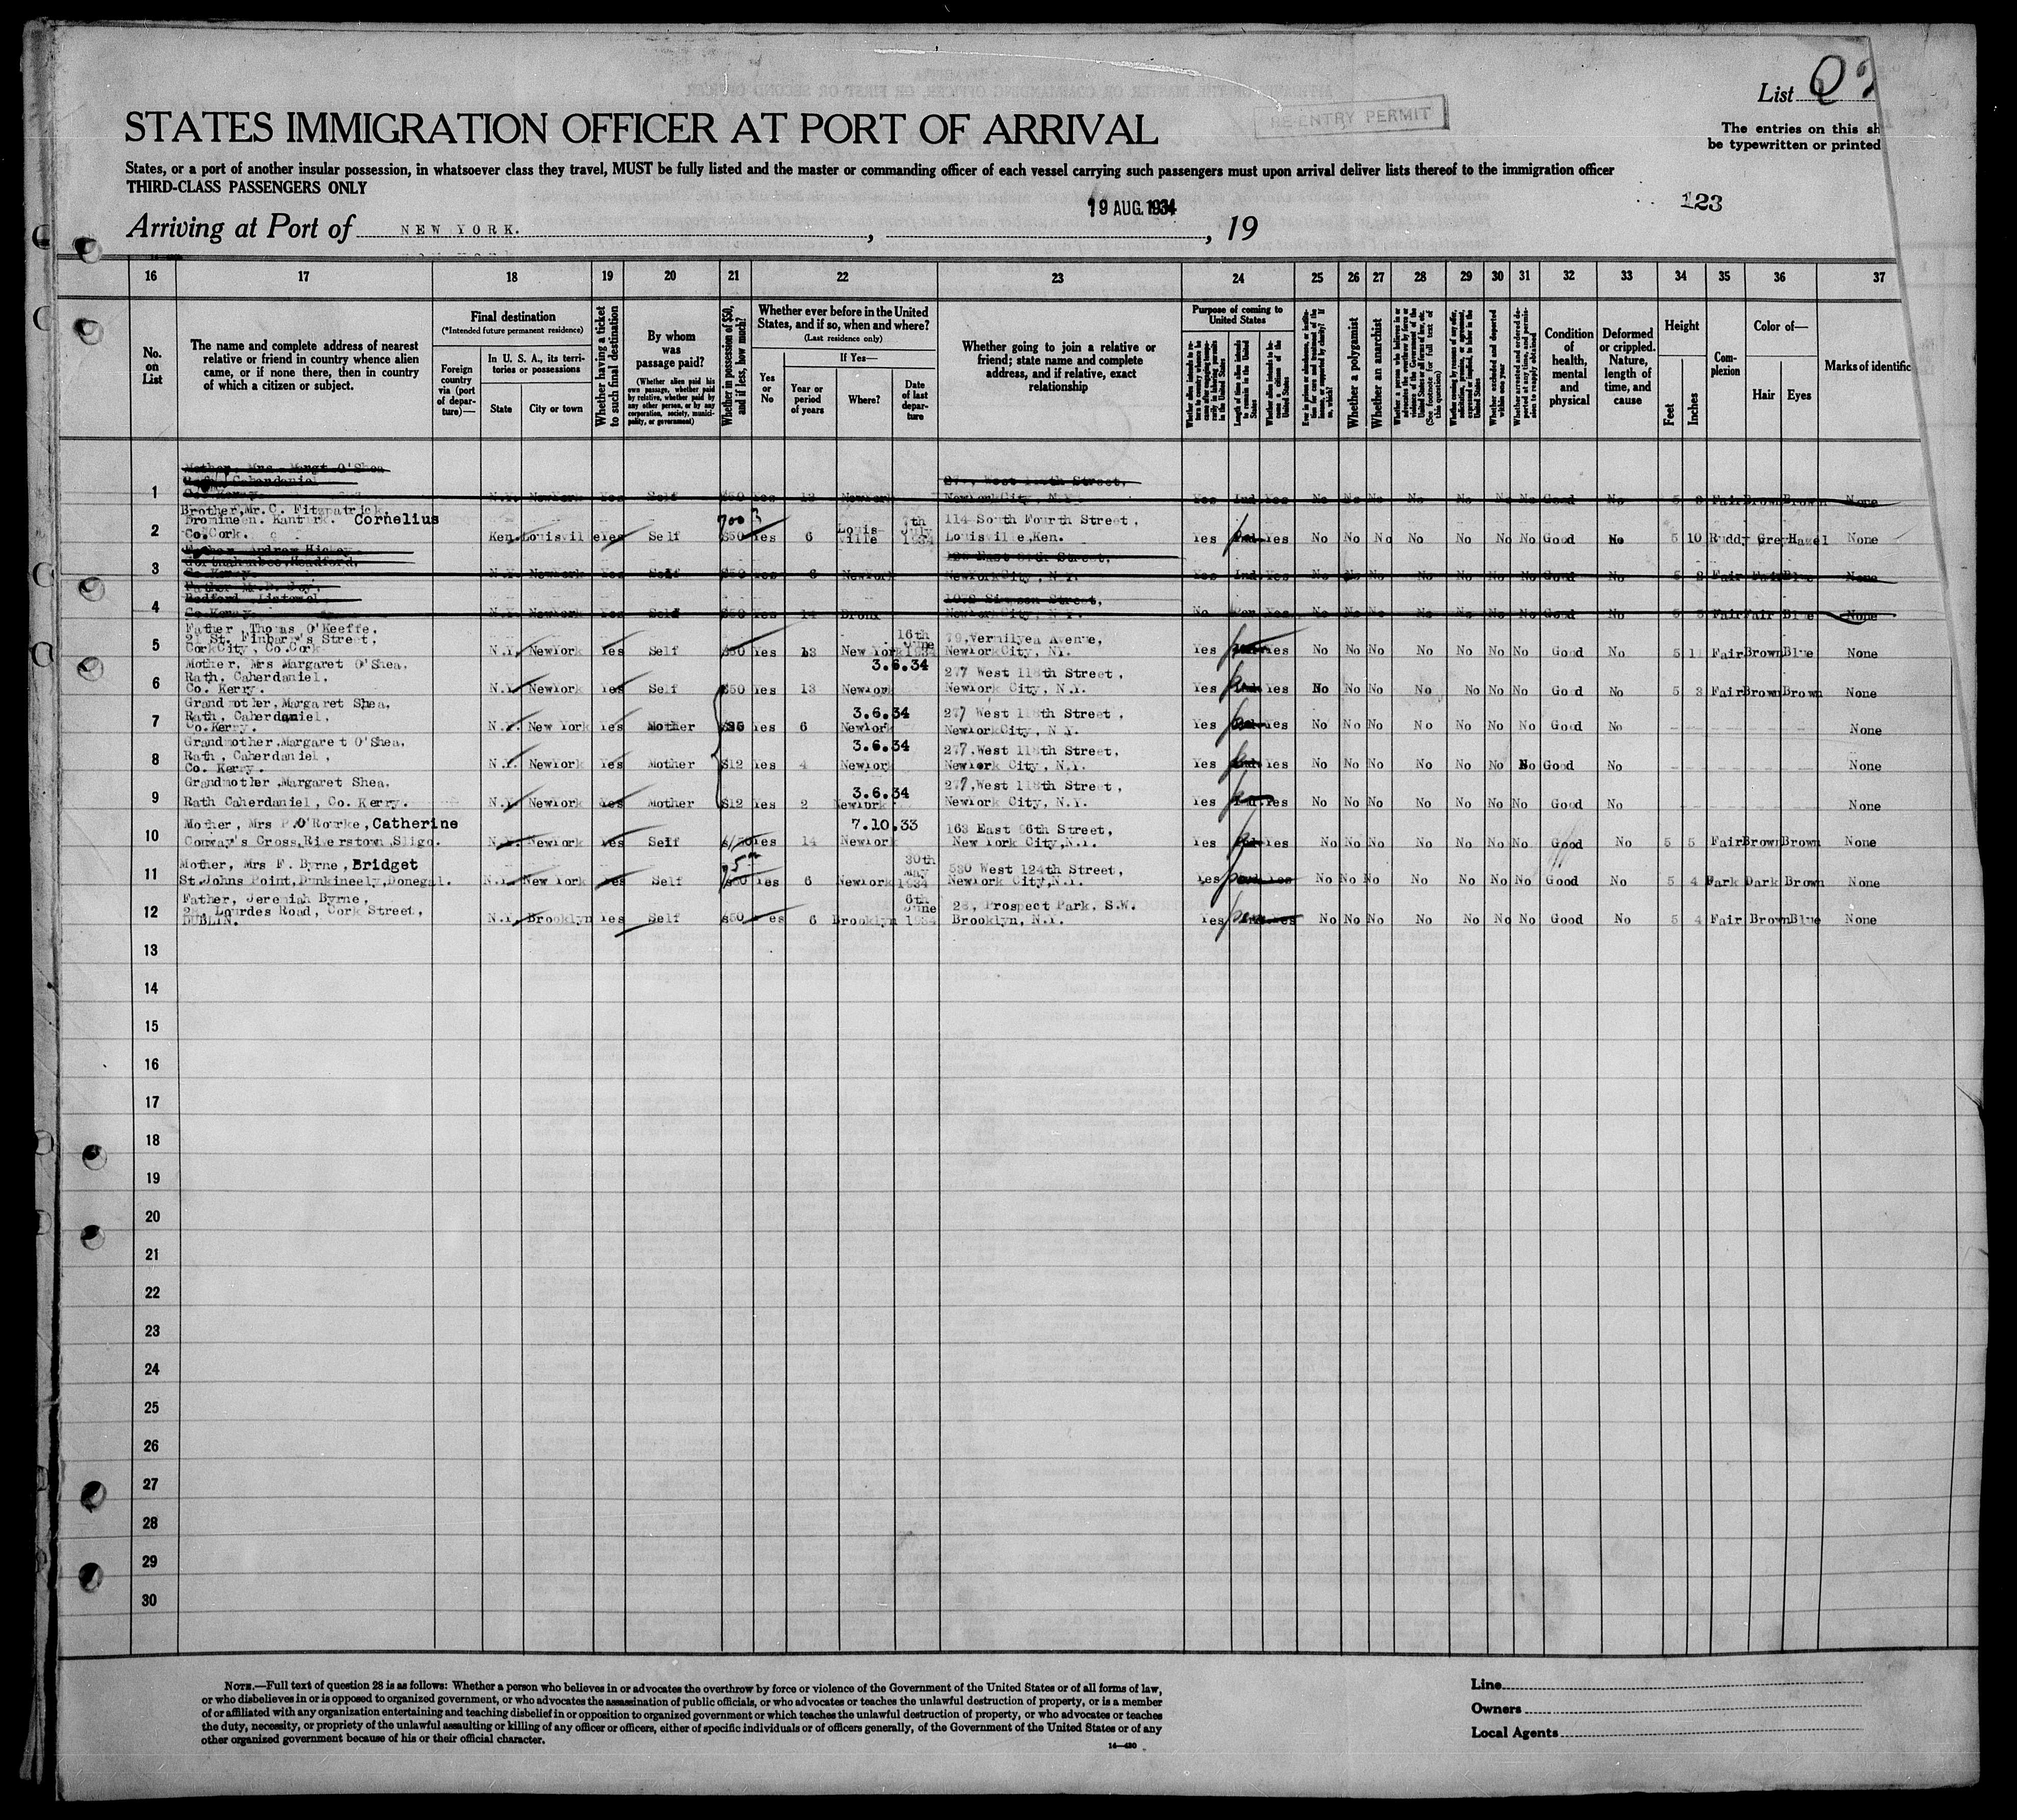 List
RE-ENTRY PERMIT
STATES IMMIGRATION OFFICER AT PORT OF ARRIVAL
The entries on this sh
be typewritten or printed
States, or a port of another insular possession, in whatsoever class they travel, MUST be fully listed and the master or commanding officer of each vessel carrying such passengers must upon arrival deliver lists thereof to the immigration officer
THIRD-CLASS PASSENGERS ONLY
19 AUG. 1934
123
Arriving at Port of NEW YORK. , , 19
16 17 18 19 20 21 22 23 24 25 26 27 28 29 30 31 32 33 34 35 36 37
No. on List
The name and complete address of nearest relative or friend in country whence alien came, or if none there, then in country of which a citizen or subject.
Final destination
(*Intended future permanent residence)
Foreign country via (port of departure)—
In U. S. A., its territories or possessions
State
City or town
Whether having a ticket to such final destination
By whom was passage paid?
(Whether alien paid his own passage, whether paid by relative, whether paid by any other person, or by any corporation, society, municipality, or government)
Whether in possession of $50, and if less, how much?
Whether ever before in the United States, and if so, when and where?
(Last residence only)
Yes or No
If Yes—
Year or period of years
Where?
Date of last departure
Whether going to join a relative or friend; state name and complete address, and if relative, exact relationship
Purpose of coming to United States
Whether a polygamist
Whether an anarchist
Condition of health, mental and physical
Deformed or crippled. Nature, length of time, and cause
Height
Feet
Inches
Complexion
Color of—
Hair
Eyes
Marks of identific
1 Mother, Mrs. Margt O'Shea
Rath, Caherdaniel
Co. Kerry. N.Y. NewYork Yes Self $50 Yes 13 NewYork 277, West 118th Street, NewYork City, N.Y. Yes Ind. Yes No No No No No No No Good No 5 3 Fair Brown Brown None
2 Brother, Mr. C. Fitzpatrick, Cornelius
Dromineen. Kanturk.
Co. Cork. Ken. Louisville Yes Self 700 $50 Yes 6 Louisville 7th July 1934 114 South Fourth Street, Louisville, Ken. Yes Yes No No No No No No No Good No 5 10 Ruddy Grey Hazel None
3 Father Andrew Hickey
Co. Kerry. N.Y. NewYork Yes Self $50 Yes 6 NewYork NewYork City, N.Y. Yes Ind. Yes No No No No No No No Good No 5 2 Fair Fair Blue None
4 Father Mr.
Bedford, Listowel,
Co. Kerry N.Y. NewYork Yes Self $50 Yes 14 Bronx 1072 Simpson Street, NewYork City, N.Y. No Per Yes No No No No No No No Good No 5 Fair Fair Blue None
5 Father, Thomas O'Keeffe.
21 St. Finbarr's Street,
Cork City, Co. Cork N.Y. NewYork Yes Self $50 Yes 13 New York 16th June 1934 79, Vermilyea Avenue, NewYork City, NY. Yes Yes No No No No No No No Good No 5 11 Fair Brown Blue None
6 Mother, Mrs Margaret O'Shea,
Rath. Caherdaniel.
Co. Kerry. N.Y. NewYork Yes Self $50 Yes 13 NewYork 3.6.34 277 West 118th Street, NewYork City, N.Y. Yes Yes No No No No No No No Good No 5 3 Fair Brown Brown None
7 Grandmother, Margaret Shea,
Rath, Caherdaniel,
Co. Kerry. N.Y. New York Yes Mother Yes 6 NewYork 3.6.34 277 West 118th Street, NewYork City, N Y. Yes Yes No No No No No No No Good No None
8 Grandmother, Margaret O'Shea,
Rath, Caherdaniel,
Co. Kerry. N.Y. NewYork Yes Mother $12 Yes 4 NewYork 3.6.34 277, West 118th Street, NewYork City, N.Y. Yes Yes No No No No No No No Good No None
9 Grandmother, Margaret Shea.
Rath Caherdaniel, Co. Kerry. N.Y. NewYork Yes Mother $12 Yes 2 NewYork 3.6.34 277, West 118th Street, NewYork City, N.Y. Yes Yes No No No No No No No Good No None
10 Mother, Mrs P. O'Rourke, Catherine
Conway's Cross, Riverstown, Sligo. N.Y. NewYork Yes Self Yes 14 NewYork 7.10.33 163 East 96th Street, New York City, N.Y. Yes Yes No No No No No No No Good No 5 5 Fair Brown Brown None
11 Mother, Mrs F. Byrne, Bridget
St. Johns Point, Dunkineely, Donegal. N.Y. New York Yes Self $50 Yes 6 NewYork 30th May 1934 530 West 124th Street, NewYork City, N.Y. Yes Yes No No No No No No No Good No 5 4 Dark Dark Brown None
12 Father, Jeremiah Byrne,
Lourdes Road, Cork Street,
DUBLIN. N.Y. Brooklyn Yes Self $50 Yes 6 Brooklyn 6th June 1934 28, Prospect Park, S.W. Brooklyn, N.Y. Yes Yes No No No No No No No Good No 5 4 Fair Brown Blue None
13
14
15
16
17
18
19
20
21
22
23
24
25
26
27
28
29
30
NOTE.—Full text of question 28 is as follows: Whether a person who believes in or advocates the overthrow by force or violence of the Government of the United States or of all forms of law,
or who disbelieves in or is opposed to organized government, or who advocates the assassination of public officials, or who advocates or teaches the unlawful destruction of property, or is a member
of or affiliated with any organization entertaining and teaching disbelief in or opposition to organized government or which teaches the unlawful destruction of property, or who advocates or teaches
the duty, necessity, or propriety of the unlawful assaulting or killing of any officer or officers, either of specific individuals or of officers generally, of the Government of the United States or of any
other organized government because of his or their official character.
14—430
Line
Owners
Local Agents